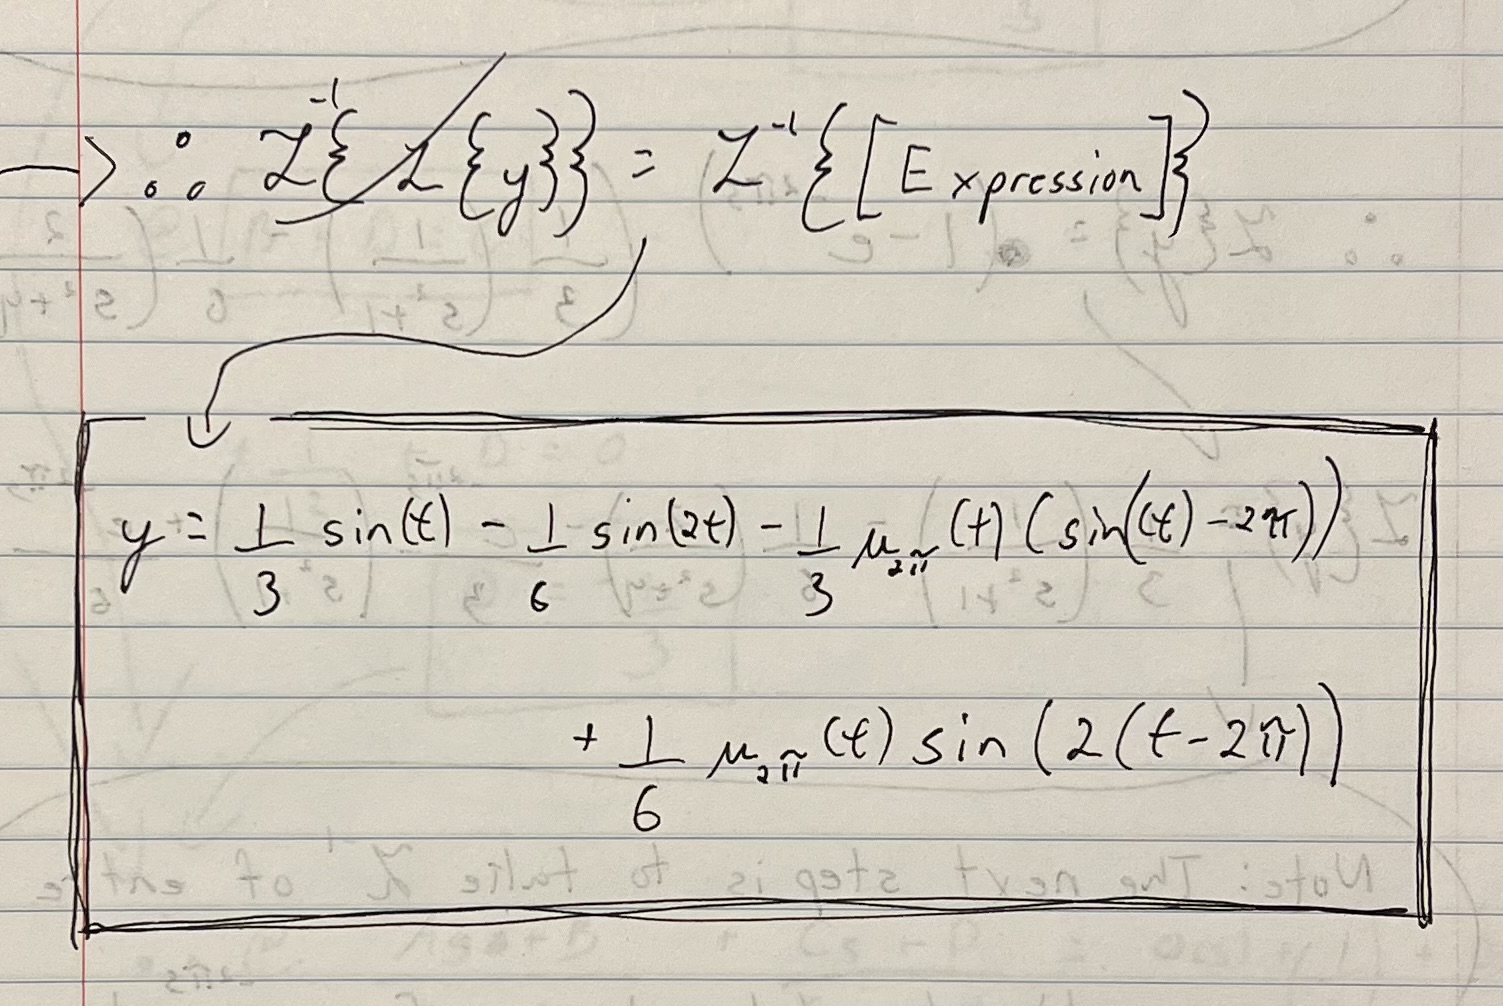 → ∴ ℒ⁻¹{ℒ{y}} = ℒ⁻¹{[Expression]}
y = 1/3 sin(t) - 1/6 sin(2t) - 1/3 μ₂π(t) (sin((t) - 2π))
+ 1/6 μ₂π(t) sin(2(t-2π))